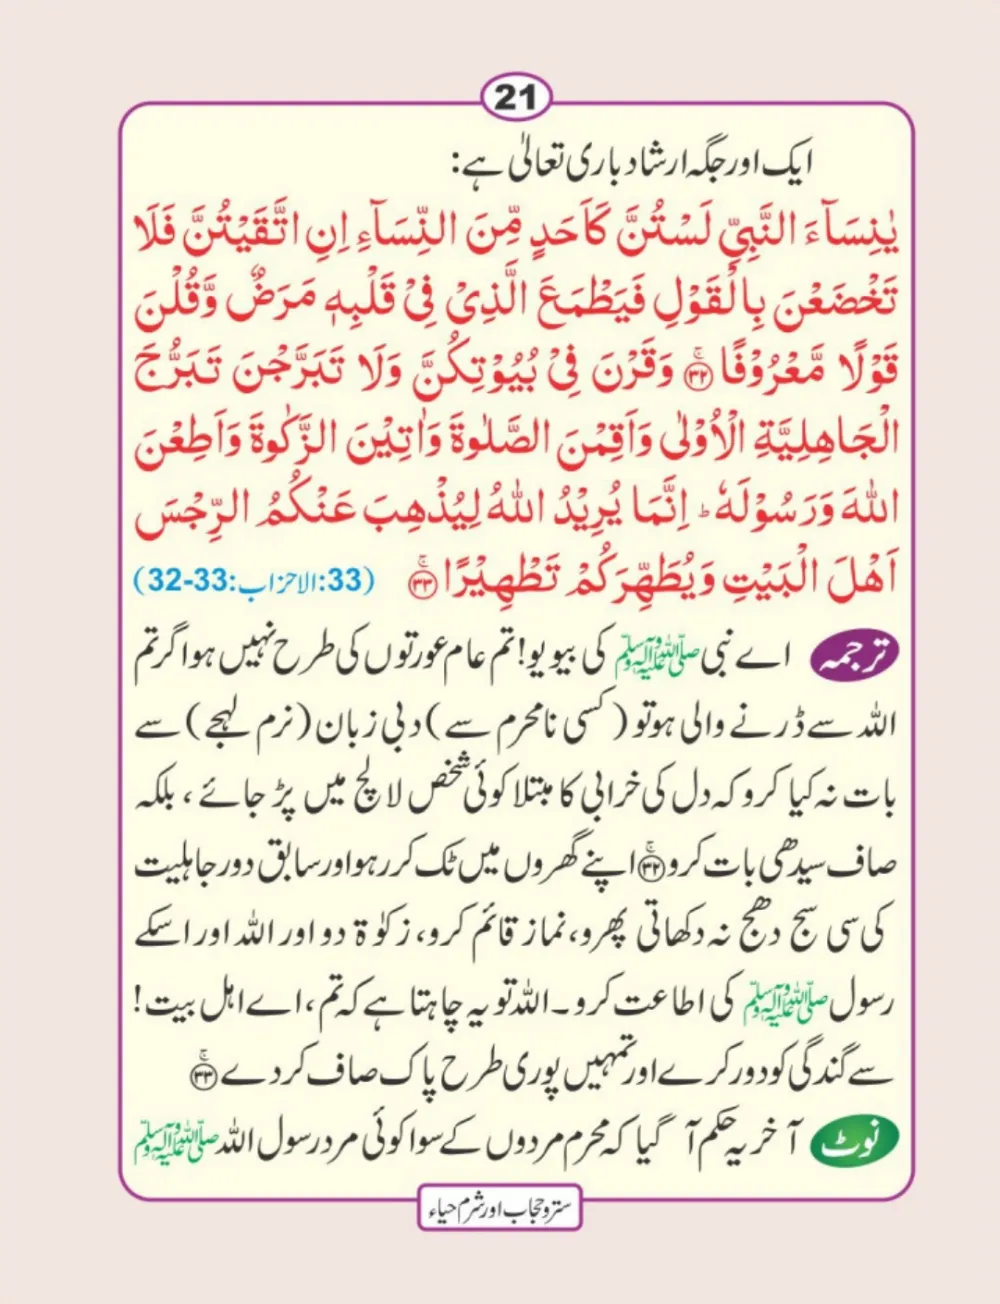 21
ایک اور جگہ ارشاد باری تعالیٰ ہے:
یٰنِسَآءَ النَّبِیِّ لَسْتُنَّ کَاَحَدٍ مِّنَ النِّسَآءِ اِنِ اتَّقَیْتُنَّ فَلَا
تَخْضَعْنَ بِالْقَوْلِ فَیَطْمَعَ الَّذِیْ فِیْ قَلْبِہٖ مَرَضٌ وَّقُلْنَ
قَوْلًا مَّعْرُوْفًا ﴿۳۲﴾ۚ وَقَرْنَ فِیْ بُیُوْتِکُنَّ وَلَا تَبَرَّجْنَ تَبَرُّجَ
الْجَاهِلِیَّةِ الْاُوْلٰی وَاَقِمْنَ الصَّلٰوةَ وَاٰتِیْنَ الزَّکٰوةَ وَاَطِعْنَ
اللّٰہَ وَرَسُوْلَہٗ ؕ اِنَّمَا یُرِیْدُ اللّٰہُ لِیُذْهِبَ عَنْکُمُ الرِّجْسَ
اَهْلَ الْبَیْتِ وَیُطَهِّرَکُمْ تَطْهِیْرًا ﴿۳۳﴾ۚ (33:الاحزاب:33-32)
ترجمہ اے نبی ﷺ کی بیویو! تم عام عورتوں کی طرح نہیں ہو اگر تم
اللہ سے ڈرنے والی ہو تو (کسی نامحرم سے) دبی زبان (نرم لہجے) سے
بات نہ کیا کرو کہ دل کی خرابی کا مبتلا کوئی شخص لالچ میں پڑ جائے، بلکہ
صاف سیدھی بات کرو ﴿۳۲﴾ۚ اپنے گھروں میں ٹک کر رہو اور سابق دور جاہلیت
کی سی سج دھج نہ دکھاتی پھرو، نماز قائم کرو، زکوٰۃ دو اور اللہ اور اسکے
رسول ﷺ کی اطاعت کرو۔ اللہ تو یہ چاہتا ہے کہ تم، اے اہل بیت!
سے گندگی کو دور کرے اور تمہیں پوری طرح پاک صاف کر دے ﴿۳۳﴾ۚ
نوٹ آخر یہ حکم آ گیا کہ محرم مردوں کے سوا کوئی مرد رسول اللہ ﷺ
ستر و حجاب اور شرم حیاء